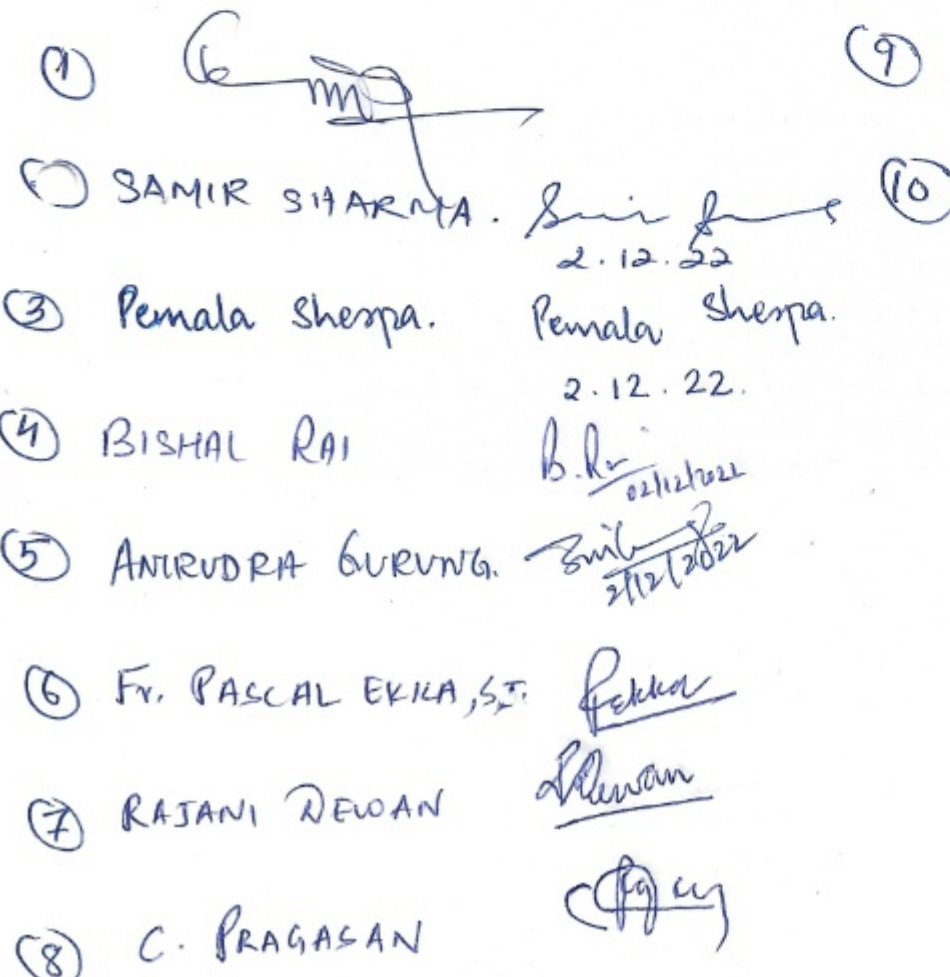 1
9
SAMIR SHARMA.
10
2.12.22
3 Pemala Sherpa. Pemala Sherpa.
2.12.22.
4 BISHAL RAI B.Rai
02/12/2022
5 ANIRUDRA GURUNG.
2/12/2022
6 Fr. PASCAL EKKA, S.J. PEkka
7 RAJANI DEWAN RDewan
8 C. PRAGASAN